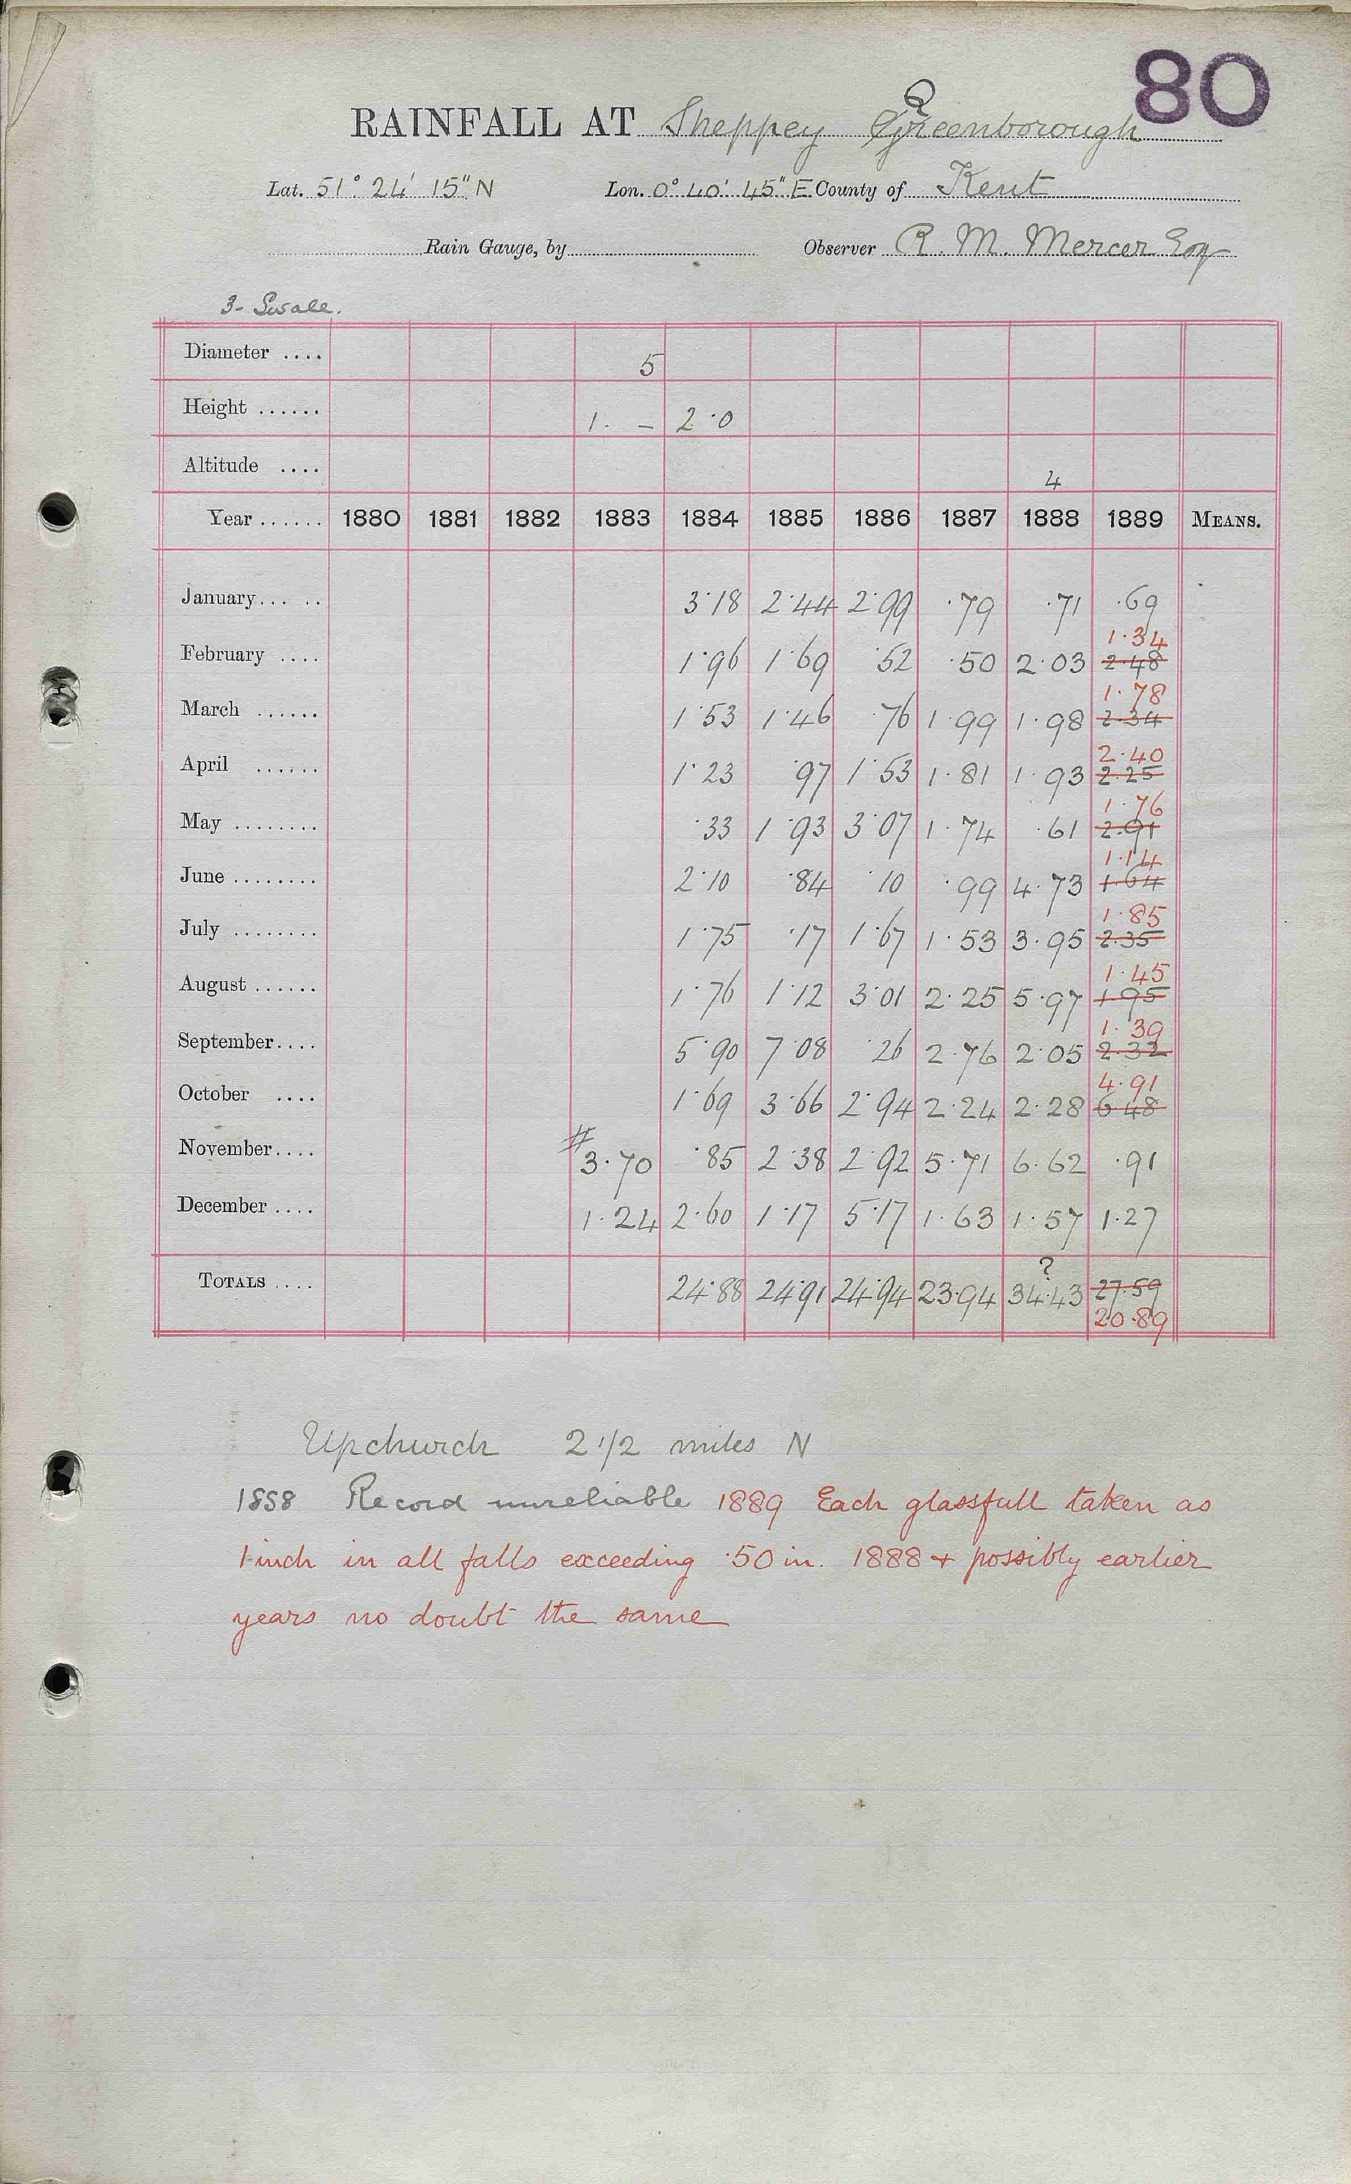 80
RAINFALL AT Sheppey Greenborough
Lat. 51° 24' 15" N Lon. 0° 40' 45" E County of Kent
Rain Gauge, by Observer R. M. Mercer Esq
3- Swale.
Diameter .... 5
Height ...... 1. – 2.0
Altitude .... 4
Year ...... 1880 1881 1882 1883 1884 1885 1886 1887 1888 1889 MEANS.
January... .. 3.18 2.44 2.99 .79 .71 .69
1.34
February .... 1.96 1.69 .52 .50 2.03 2.48
1.78
March ...... 1.53 1.46 .76 1.99 1.98 2.34
2.40
April ...... 1.23 .97 1.53 1.81 1.93 2.25
1.76
May ........ .33 1.93 3.07 1.74 .61 2.91
1.14
June ........ 2.10 .84 .10 .99 4.73 1.64
1.85
July ........ 1.75 .17 1.67 1.53 3.95 2.35
1.45
August ...... 1.76 1.12 3.01 2.25 5.97 1.95
1.39
September.... 5.90 7.08 .26 2.76 2.05 2.32
4.91
October .... 1.69 3.66 2.94 2.24 2.28 6.48
#
November.... 3.70 .85 2.38 2.92 5.71 6.62 .91
December .... 1.24 2.60 1.17 5.17 1.63 1.57 1.27
?
TOTALS .... 24.88 24.91 24.94 23.94 34.43 27.59
20.89
Upchurch 2 1/2 miles N
1888 Record unreliable 1889 Each glassfull taken as
1 inch in all falls exceeding .50 in. 1888 + possibly earlier
years no doubt the same